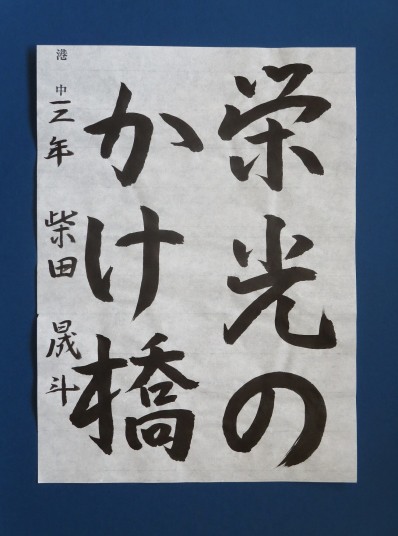 栄光の
かけ橋
港中三年 柴田 晟斗